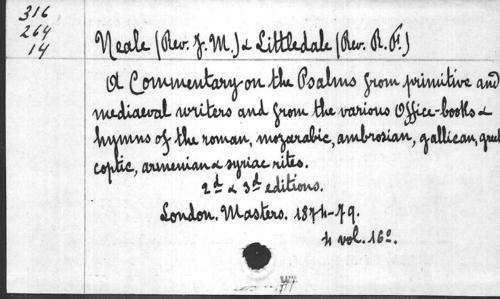 316
264
14
Neale (Rev. J. M.) & Littledale (Rev. R. F.)
A Commentary on the Psalms from primitive and
mediaeval writers and from the various Office-books &
hymns of the roman, mozarabic, ambrosian, gallican, greek
coptic, armenian & syriac rites.
2d & 3d editions.
London. Masters. 1874-79.
4 vol. 16o.